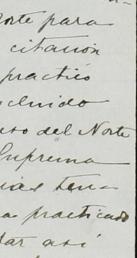 orte para
citación
practicó
cluido
eso del Norte
Suprema
ias ten
a practicado
dar así